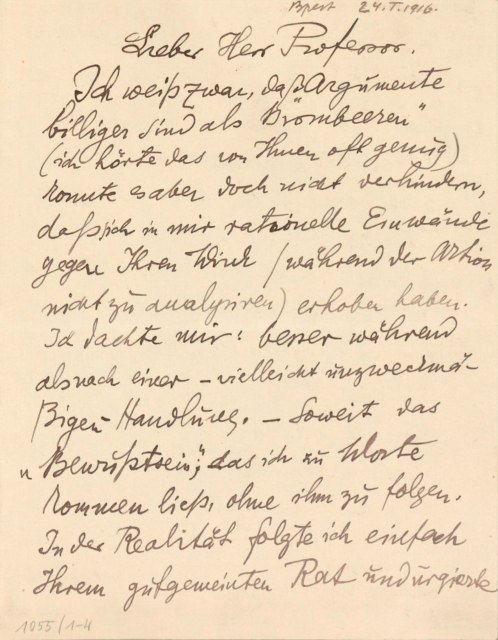 Bpest 24.I.1916.
Lieber Herr Professor.
Ich weiß zwar, daß „Argumente
billiger sind als Brombeeren"
(ich hörte das von Ihnen oft genug)
konnte es aber doch nicht verhindern,
daß sich in mir rationelle Einwände
gegen Ihren Wink (während der Aktion
nicht zu analysiren) erhoben haben.
Ich dachte mir: besser während
als nach einer – vielleicht unzweckmä-
ßigen Handlung. – Soweit das
„Bewußtsein", das ich zu Worte
kommen ließ, ohne ihm zu folgen.
In der Realität folgte ich einfach
Ihrem gutgemeinten Rat und urgierte
1055/1-4